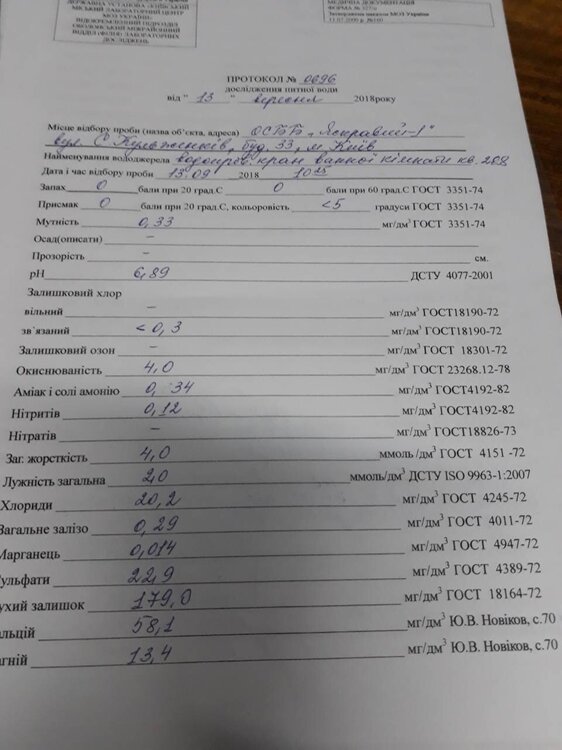 ДЕРЖАВНА УСТАНОВА «КИЇВСЬКИЙ
МІСЬКИЙ ЛАБОРАТОРНИЙ ЦЕНТР
МОЗ УКРАЇНИ»
ВІДОКРЕМЛЕНИЙ ПІДРОЗДІЛ
ОБОЛОНСЬКИЙ МІЖРАЙОННИЙ
ВІДДІЛ (ФІЛІЯ) ЛАБОРАТОРНИХ
ДОСЛІДЖЕНЬ
МЕДИЧНА ДОКУМЕНТАЦІЯ
ФОРМА № 327/о
Затверджена наказом МОЗ України
11.07.2000 р. №160
ПРОТОКОЛ № 0696
дослідження питної води
від " 13 " вересня 2018року
Місце відбору проби (назва об'єкта, адреса) ОСББ „Яскравий-1"
вул. С. Кульженків, буд. 33, м. Київ
Найменування вододжерела водопров. кран ванної кімнати кв. 208
Дата і час відбору проби 13.09 2018 10 25
Запах 0 бали при 20 град.С 0 бали при 60 град.С ГОСТ 3351-74
Присмак 0 бали при 20 град.С, кольоровість <5 градуси ГОСТ 3351-74
Мутність 0,33 мг/дм³ ГОСТ 3351-74
Осад(описати) –
Прозорість – см.
рН 6,89 ДСТУ 4077-2001
Залишковий хлор
вільний – мг/дм³ ГОСТ18190-72
зв`язаний < 0,3 мг/дм³ ГОСТ18190-72
Залишковий озон – мг/дм³ ГОСТ 18301-72
Окиснюваність 4,0 мг/дм³ ГОСТ 23268.12-78
Аміак і солі амонію 0,34 мг/дм³ ГОСТ4192-82
Нітритів 0,12 мг/дм³ ГОСТ4192-82
Нітратів – мг/дм³ ГОСТ18826-73
Заг. жорсткість 4,0 ммоль /дм³ ГОСТ 4151 -72
Лужність загальна 2,0 ммоль/дм³ ДСТУ ISO 9963-1:2007
Хлориди 20,2 мг/дм³ ГОСТ 4245-72
Загальне залізо 0,29 мг/дм³ ГОСТ 4011-72
Марганець 0,014 мг/дм³ ГОСТ 4947-72
ульфати 22,9 мг/дм³ ГОСТ 4389-72
ухий залишок 179,0 мг/дм³ ГОСТ 18164-72
альцій 58,1 мг/дм³ Ю.В. Новіков, с.70
агній 13,4 мг/дм³ Ю.В. Новіков, с.70